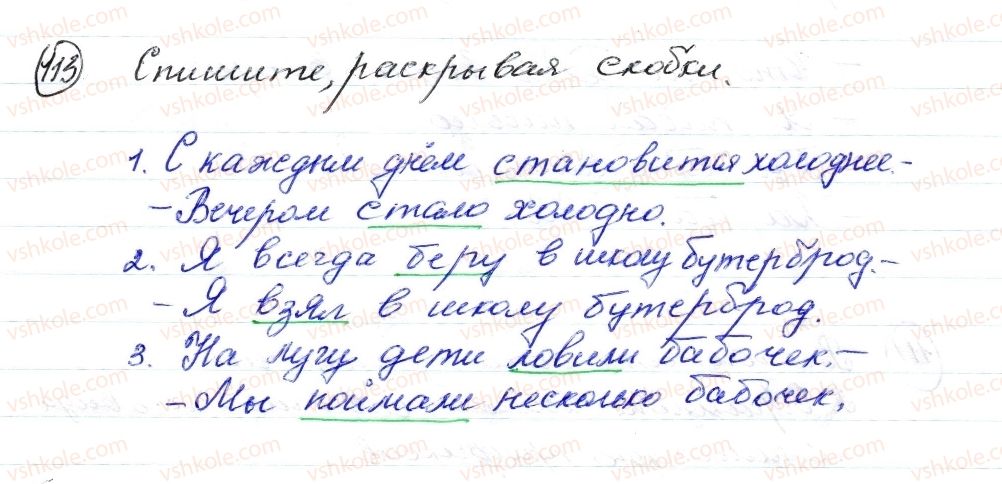 413 Спишите, раскрывая скобки.
1. С каждым днём становится холоднее.-
-Вечером стало холодно.
2. Я всегда беру в школу бутерброд.-
-Я взял в школу бутерброд.
3. На лугу дети ловили бабочек.-
-Мы поймали несколько бабочек.